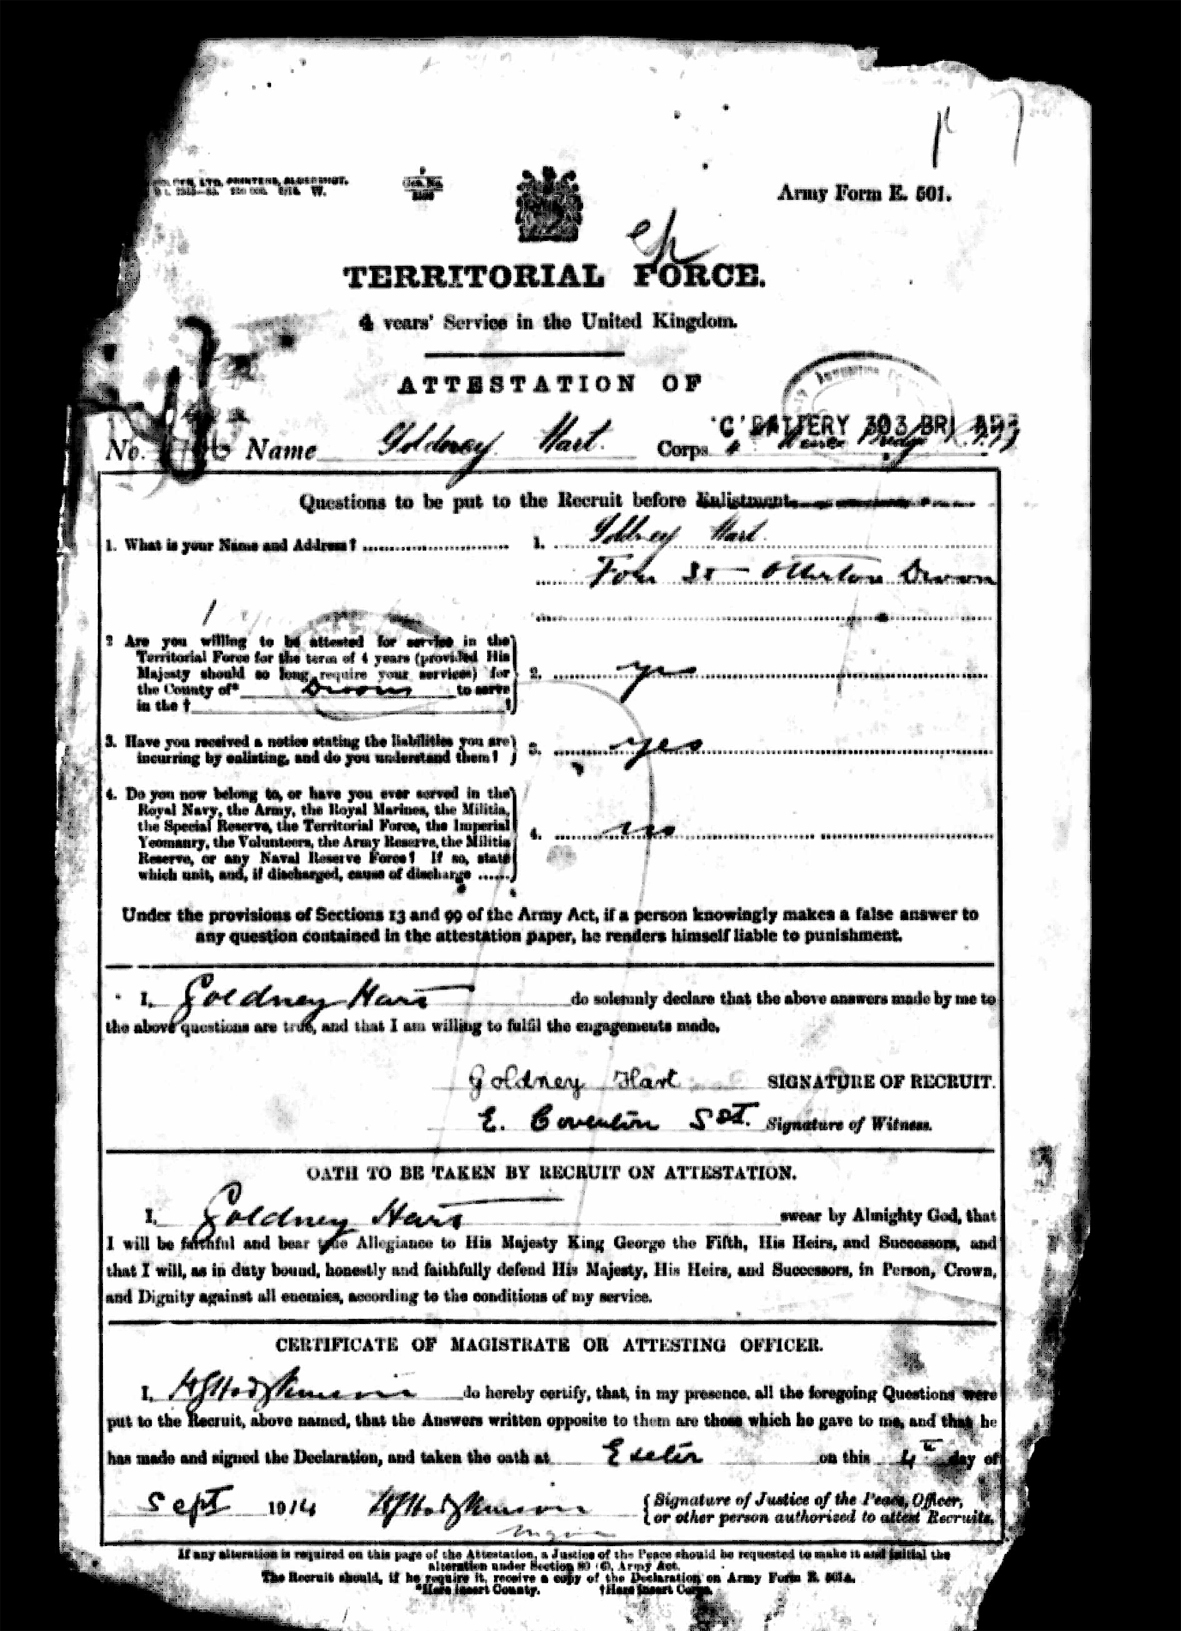 LTD, PRINTERS, ALDERSHOT.
Army Form E. 501.
TERRITORIAL FORCE.
4 years' Service in the United Kingdom.
ATTESTATION OF
'C' BATTERY 303 BRI
No. Name Goldney Hart. Corps
Questions to be put to the Recruit before Enlistment
1. What is your Name and Address? 1. Goldney Hart.
Fore St Otterton Devon
2 Are you willing to be attested for service in the
Territorial Force for the term of 4 years (provided His
Majesty should so long require your services) for
the County of* Devon to serve
in the †
2. yes
3. Have you received a notice stating the liabilities you are
incurring by enlisting, and do you understand them?
3. yes
4. Do you now belong to, or have you ever served in the
Royal Navy, the Army, the Royal Marines, the Militia,
the Special Reserve, the Territorial Force, the Imperial
Yeomanry, the Volunteers, the Army Reserve, the Militia
Reserve, or any Naval Reserve Force? If so, state
which unit, and, if discharged, cause of discharge ......
4. no
Under the provisions of Sections 13 and 99 of the Army Act, if a person knowingly makes a false answer to
any question contained in the attestation paper, he renders himself liable to punishment.
I, Goldney Hart do solemnly declare that the above answers made by me to
the above questions are true, and that I am willing to fulfil the engagements made.
Goldney Hart SIGNATURE OF RECRUIT.
E. Coventon Sgt. Signature of Witness.
OATH TO BE TAKEN BY RECRUIT ON ATTESTATION.
I, Goldney Hart swear by Almighty God, that
I will be faithful and bear true Allegiance to His Majesty King George the Fifth, His Heirs, and Successors, and
that I will, as in duty bound, honestly and faithfully defend His Majesty, His Heirs, and Successors, in Person, Crown,
and Dignity against all enemies, according to the conditions of my service.
CERTIFICATE OF MAGISTRATE OR ATTESTING OFFICER.
I, Hodgkinson do hereby certify, that, in my presence, all the foregoing Questions were
put to the Recruit, above named, that the Answers written opposite to them are those which he gave to me, and that he
has made and signed the Declaration, and taken the oath at Exeter on this 4th day of
Sept 1914 Hodgkinson { Signature of Justice of the Peace, Officer,
Major { or other person authorised to attest Recruits.
If any alteration is required on this page of the Attestation, a Justice of the Peace should be requested to make it and initial the
alteration under Section 80 (6), Army Act.
The Recruit should, if he require it, receive a copy of the Declaration on Army Form E. 501A.
*Here insert County. †Here insert Corps.